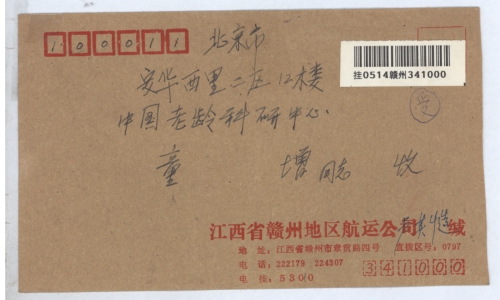 100011
北京市
挂0514赣州341000
安华西里二区12楼
中国老龄科研中心
童 增 同志 收
江西省赣州地区航运公司
地 址：江西省赣州市章贡路四号 直拨区号：0797
电 话：222179 224307
电 挂：5300
341000